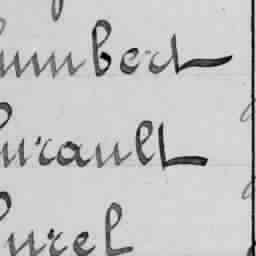 umbert
urault
urel